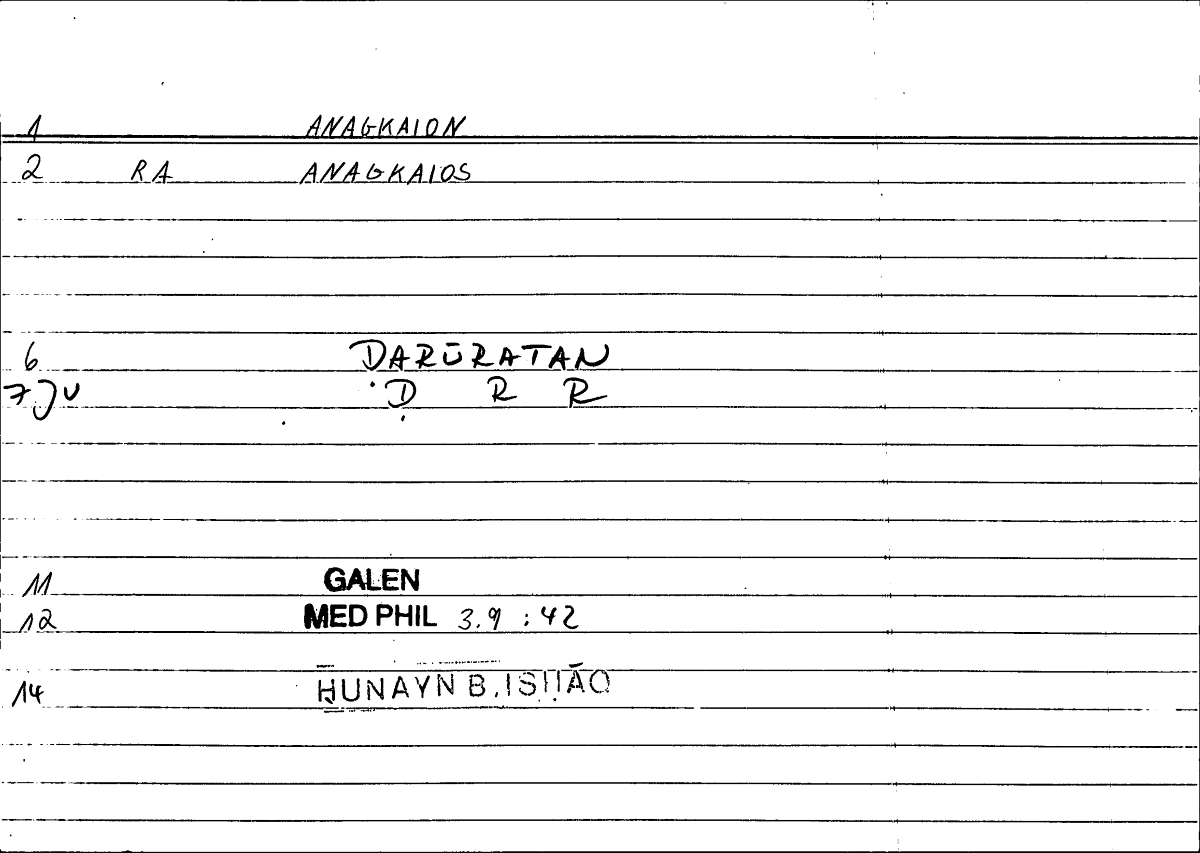 1 ANAGKAION
2 RA ANAGKAIOS
6 ḌARŪRATAN
7 JV Ḍ R R
11 GALEN
12 MED PHIL 3.9 : 42
14 ḤUNAYN B. ISḤĀQ